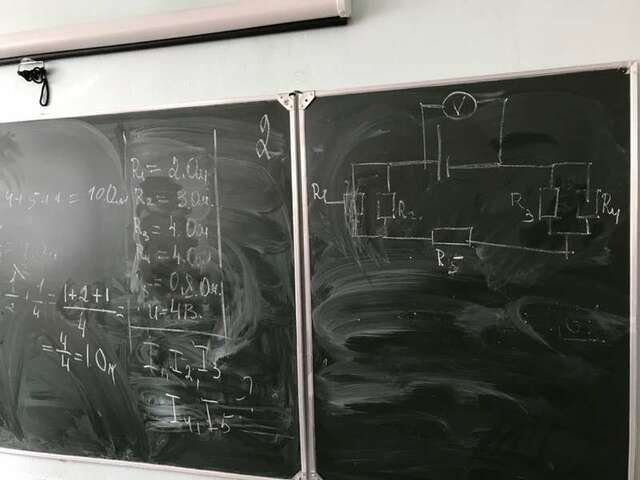 4+5+1 = 10 Ом
1/4 = (1+2+1)/4 =
= 4/4 = 1 Ом
R1 = 2.Ом
R2 = 3.Ом.
R3 = 4.Ом
= 4.Ом
= 0,8.Ом.
U=4В.
I1, I2, I3
I4, I5 - ?
2
V
R1
R2
R3
R4
R5